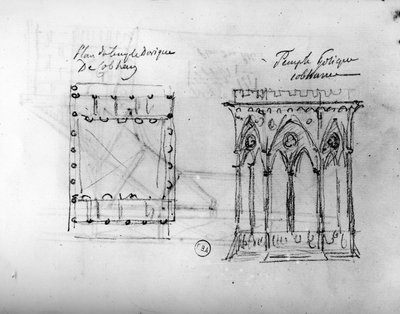 Plan du temple Dorique
De Cobham
Temple Gotique
Cobham